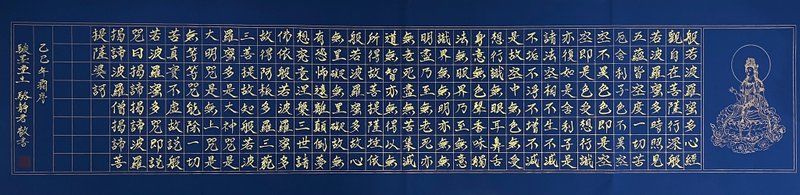 般若波羅蜜多心經
觀自在菩薩行深般
若波羅蜜多時照見
五蘊皆空度一切苦
厄舍利子色不異空
空不異色色即是空
空即是色受想行識
亦復如是舍利子是
諸法空相不生不滅
不垢不淨不增不減
是故空中無色無受
想行識無眼耳鼻舌
身意無色聲香味觸
法無眼界乃至無意
識界無無明亦無無
明盡乃至無老死亦
無老死盡無苦集滅
道無智亦無得以無
所得故菩提薩埵依
般若波羅蜜多故心
無罣礙無罣礙故無
有恐怖遠離顛倒夢
想究竟涅槃三世諸
佛依般若波羅蜜多
故得阿耨多羅三藐
三菩提故知般若波
羅蜜多是大神咒是
大明咒是無上咒是
無等等咒能除一切
苦真實不虛故說般
若波羅蜜多咒即說
咒曰揭諦揭諦波羅
揭諦波羅僧揭諦菩
提薩婆訶
乙巳年
墨堂主 駱靜君敬書